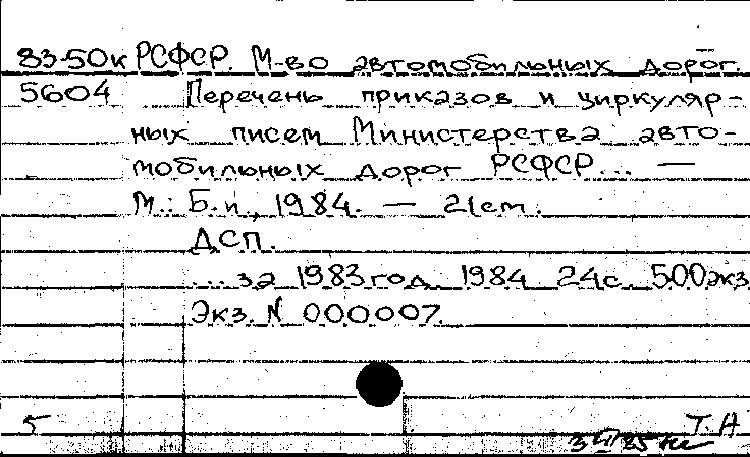 83-50к РСФСР. М-во автомобильных дорог.
5604 Перечень приказов и циркуляр-
ных писем Министерства авто-
мобильных дорог РСФСР... —
М.: Б.и., 1984. — 21см.
ДСП.
...за 1983 год. 1984 24с. 500экз
Экз. N 000007.
5 Т. А